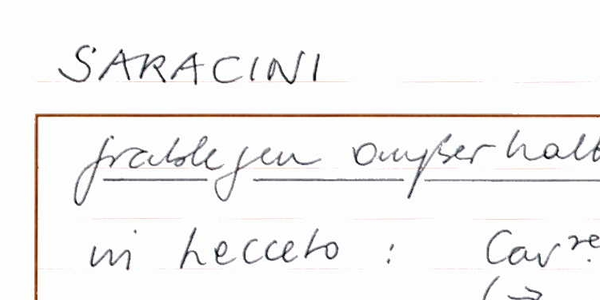 SARACINI
Grablegen außerhalb
in Lecceto : Cav.re
(→